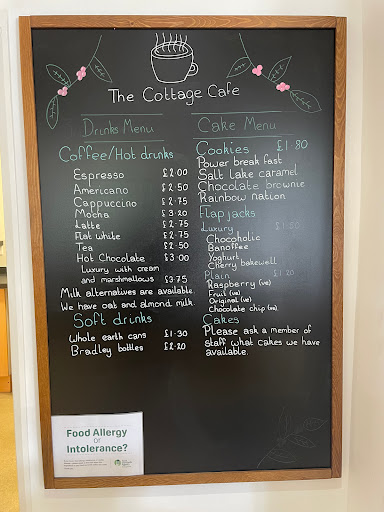 The Cottage Cafe
Drinks Menu
Coffee/Hot drinks
Espresso £2.00
Americano £2.50
Cappuccino £2.75
Mocha £3.20
Latte £2.75
Flat white £2.75
Tea £2.50
Hot Chocolate £3.00
Luxury with cream
and marshmallows £3.75
Milk alternatives are available.
We have oat and almond milk.
Soft drinks
Whole earth cans £1.30
Bradley bottles £2.20
Cake Menu
Cookies £1.80
Power break fast
Salt lake caramel
Chocolate brownie
Rainbow nation
Flap jacks
Luxury
Chocoholic
Banoffee
Yoghurt
Cherry bakewell
Plain £1.20
Raspberry (ve)
Fruit (ve)
Original (ve)
Chocolate chip (ve)
Cakes
Please ask a member of
staff what cakes we have
available.
Food Allergy
or
Intolerance?